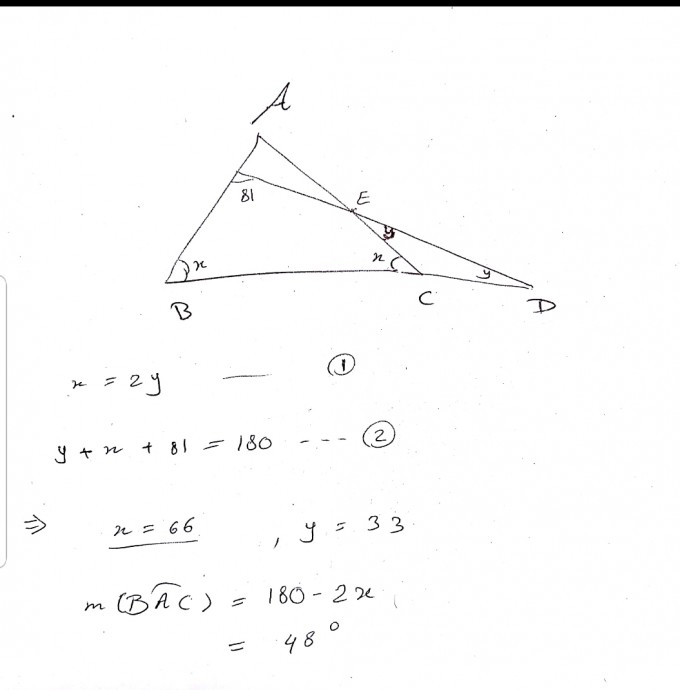 A
81
E
y
x
x
y
B
C
D
x = 2y —— ①
y + x + 81 = 180 ---- ②
⇒ x = 66 , y = 33
m (BÂC) = 180 - 2x
= 48°